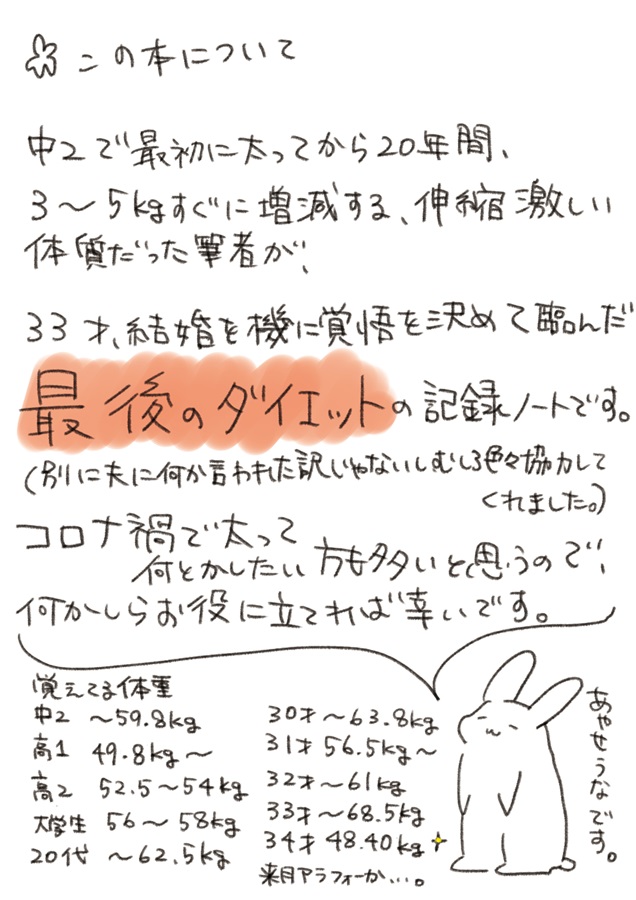 この本について
中2で最初に太ってから20年間、
3～5kgすぐに増減する、伸縮激しい
体質だった筆者が、
33才、結婚を機に覚悟を決めて臨んだ
最後のダイエットの記録ノートです。
(別に夫に何か言われた訳じゃないしむしろ色々協力して
くれました。)
コロナ禍で太って
何とかしたい方も多いと思うので、
何かしらお役に立てれば幸いです。
覚えてる体重
中2 ～59.8kg
高1 49.8kg～
高2 52.5～54kg
大学生 56～58kg
20代 ～62.5kg
30才～63.8kg
31才 56.5kg～
32才～61kg
33才～68.5kg
34才 48.40kg
来月アラフォーか…。
あやせうなです。